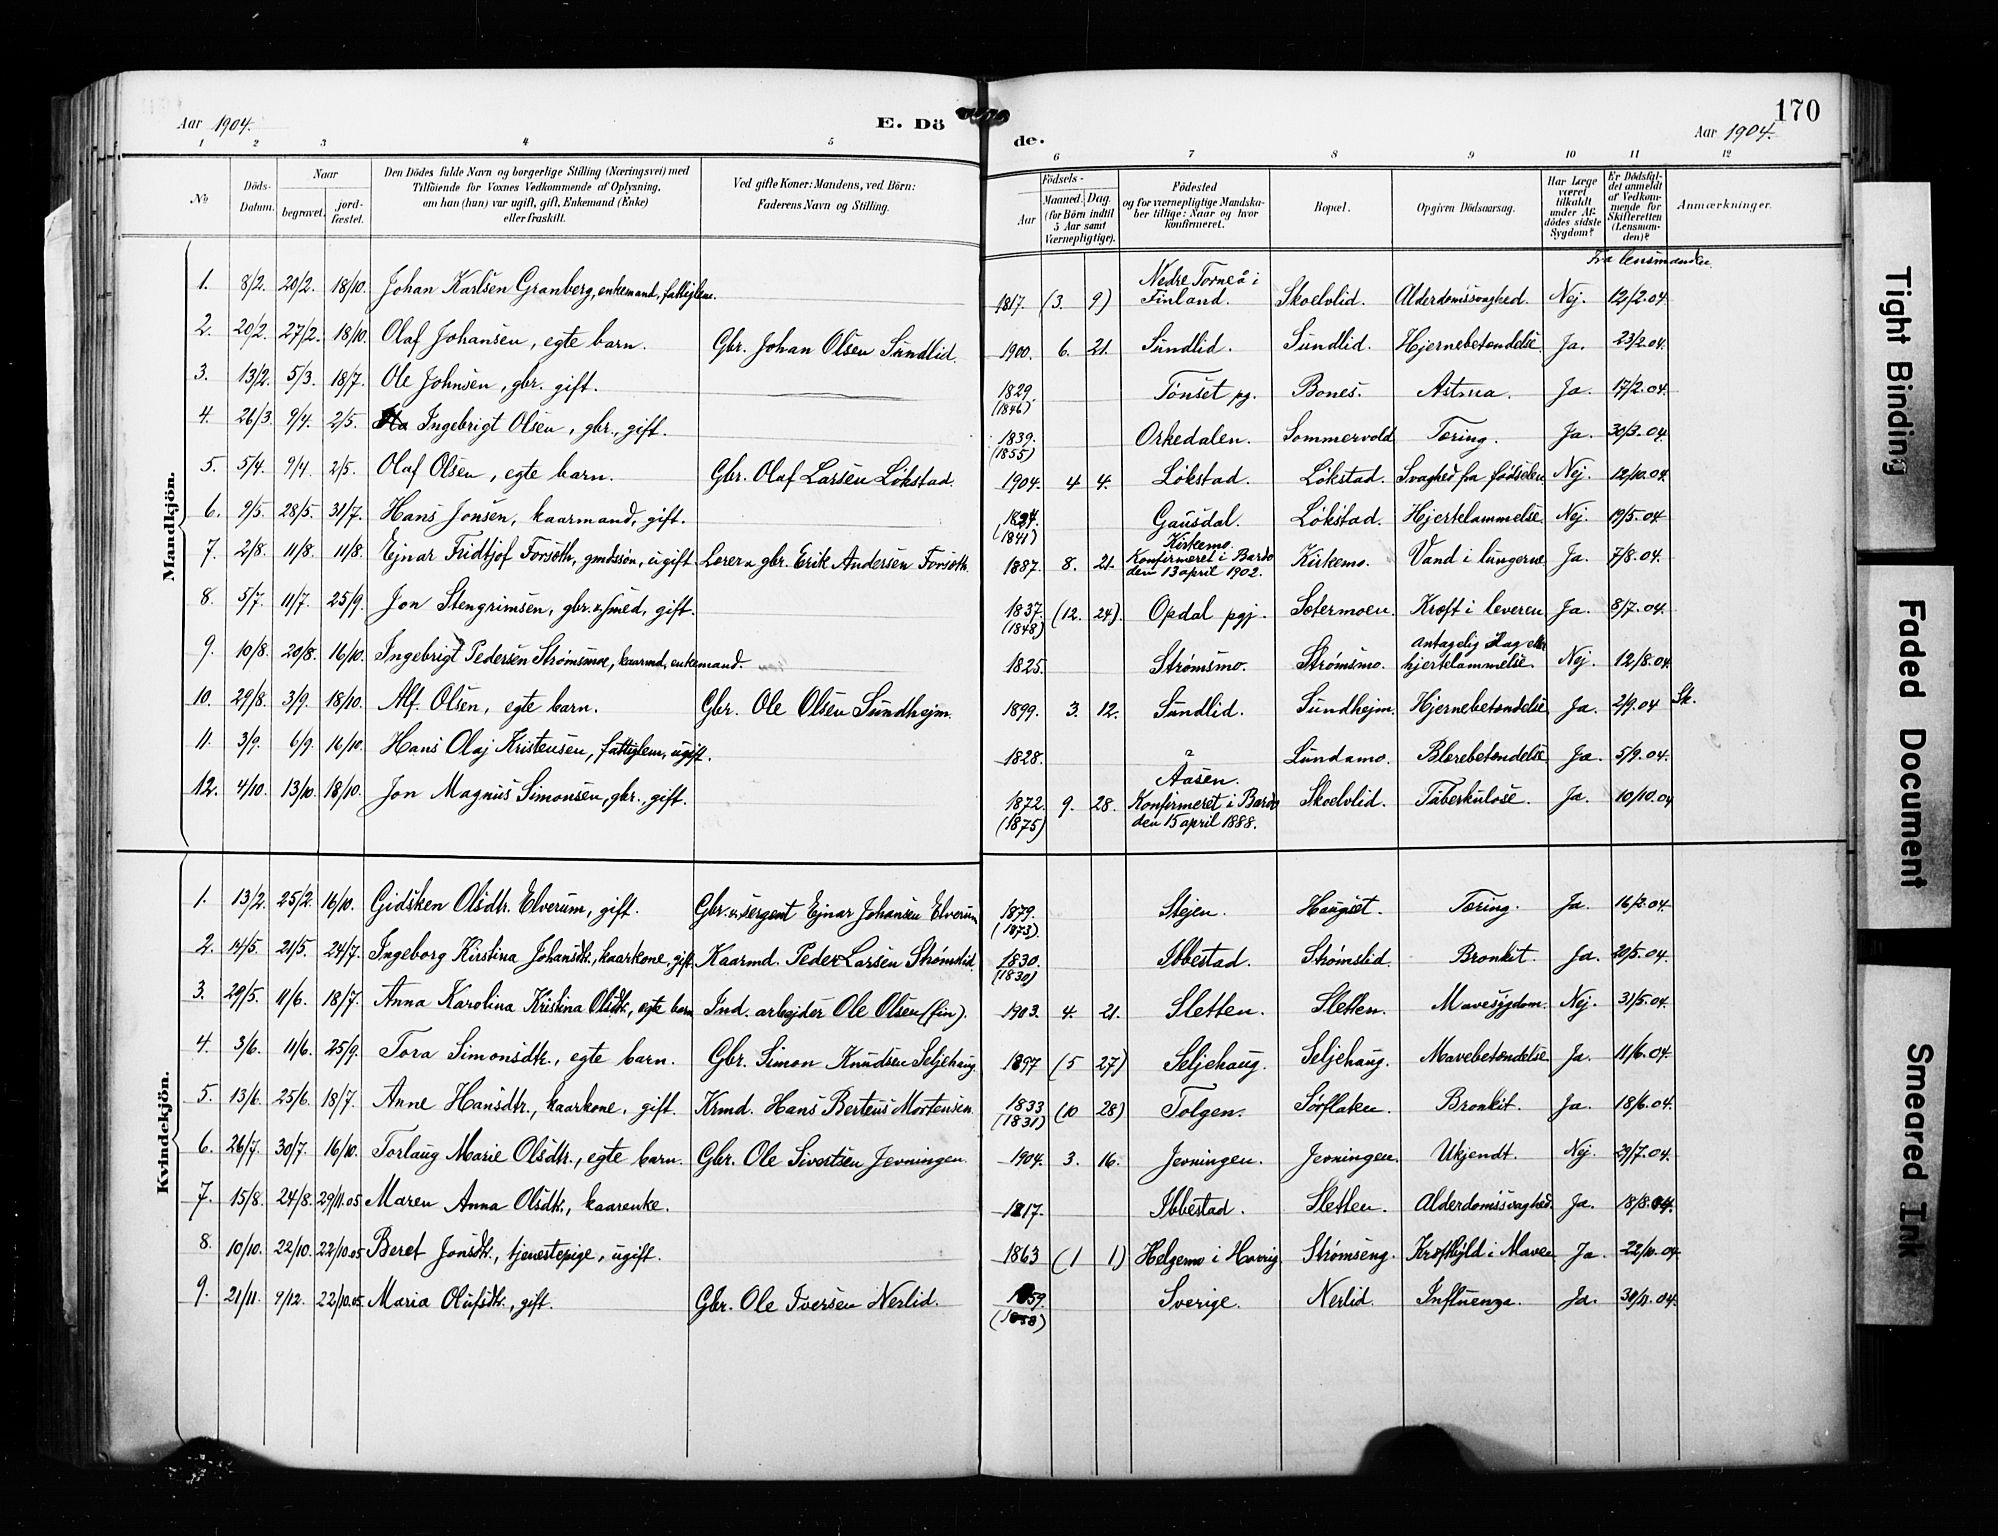 170
Aar 1904.
E. Dö
de.
Aar 1904.
1 2 3 4 5 6 7 8 9 10 11 12
No
Döds-Datum.
Naar
begravet.
jord-fæstet.
Den Dödes fulde Navn og borgerlige Stilling (Næringsvei) med
Tilföiende for Voxnes Vedkommende af Oplysning,
om han (hun) var ugift, gift, Enkemand (Enke)
eller fraskilt.
Ved gifte Koner: Mandens, ved Börn:
Faderens Navn og Stilling.
Födsels-
Aar
Maaned. Dag.
(for Börn indtil
5 Aar samt
Værnepligtige).
Födested
og for værnepligtige Mandska-
ber tillige: Naar og hvor
konfirmeret.
Bopæl.
Opgiven Dödsaarsag.
Har Læge
været
tilkaldt
under Af-
dödes sidste
Sygdom?
Er Dödsfal-
det anmeldt
af Vedkom-
mende for
Skifteretten
(Lensman-
den)?
Anmærkninger.
Fra lensmanden.
Mandkjön.
1. 8/2. 20/2. 18/10. Johan Karlsen Granberg, enkemand, fattiglem. 1817. (3. 9) Nedre Torneå i Finland. Skoelvlid. Alderdomssvaghed. Nej. 12/2.04.
2. 20/2. 27/2. 18/10. Olaf Johansen, egte barn. Gbr. Johan Olsen Sundlid. 1900. 6. 21. Sundlid. Sundlid. Hjernebetændelse Ja. 23/2.04.
3. 13/2. 5/3. 18/7. Ole Johnsen, gbr. gift. 1829. (1846) Tønset pg. Bones. Astma. Ja. 17/2.04.
4. 26/3. 9/4. 2/5. Ingebrigt Olsen, gbr., gift. 1839. (1855) Orkedalen. Sommervold Tæring. Ja. 30/3.04.
5. 5/4. 9/4. 2/5. Olaf Olsen, egte barn. Gbr. Olaf Larsen Løkstad. 1904. 4 4. Løkstad. Løkstad. Svaghed fra fødselen Nej. 12/10.04.
6. 9/5. 28/5. 31/7. Hans Jonsen, kaarmand, gift. (1841) Gausdal. Løkstad. Hjertelammelse. Nej. 19/5.04.
7. 2/8. 11/8. 11/8. Ejnar Fridtjof Forsæth, gmdssøn, ugift Lærer o. gbr. Erik Andersen Forsæth. 1887. 8. 21. Kirkemo. Konfirmeret i Bardo den 13 april 1902. Kirkemo. Vand i lungerne Ja. 7/8.04.
8. 5/7. 11/7. 25/9. Jon Stengrimsen, gbr. & smed, gift. 1837. (1848) (12. 24). Opdal pgj. Sætermoen. Kræft i leveren Ja. 8/7.04.
9. 10/8. 20/8. 16/10. Ingebrigt Pedersen Strømsmoe, kaarmd, enkemand. 1825. Strømsmo. Strømsmo. antagelig slag eller hjertelammelse. Nej. 12/8.04.
10. 29/8. 3/9. 18/10. Alf Olsen, egte barn. Gbr. Ole Olsen Sundhejm. 1899. 3. 12. Sundlid. Sundhejm. Hjernebetændelse Ja. 2/9.04 Sk.
11. 3/9. 6/9. 16/10. Hans Olaj Kristensen, fattiglem, ugift. 1828. ? Lundamo. Blærebetændelse Ja. 5/9.04.
12. 4/10. 13/10. 18/10. Jon Magnus Simonsen, gbr., gift. 1872. (1875) 9. 28. Aasen. Konfirmeret i Bardo den 15 april 1888. Skoelvlid. Tuberkulose. Ja. 10/10.04
Kvindekjön.
1. 13/2. 25/2. 16/10. Gidsken Olsdtr. Elverum, gift. Gbr. & sergent Ejnar Johansen Elverum 1879. (1873). Stejen. Haugset. Tæring. Ja. 16/2.04.
2. 14/5. 21/5. 24/7. Ingeborg Kirstina Johansdtr., kaarkone, gift. Kaarmd. Peder Larsen Strømslid. 1830. (1830) Ibbestad. Strømslid. Bronkit. Ja. 20/5.04.
3. 29/5. 11/6. 18/7. Anna Karolina Kristina Olsdtr., egte barn Ind. arbejder Ole Olsen (fin). 1903. 4. 21. Sletten. Sletten. Mavesygdom. Nej. 31/5.04.
4. 3/6. 11/6. 25/9. Tora Simonsdtr., egte barn. Gbr. Simon Knudsen Seljehaug. 1897 (5 27) Seljehaug. Seljehaug. Mavebetændelse Ja. 11/6.04.
5. 13/6. 25/6. 18/7. Anne Hansdtr., kaarkone, gift. Krmd. Hans Berteus Mortensen. 1833 (1831) (10 28) Tolgen. Sørflaten. Bronkit. Ja. 18/6.04.
6. 26/7. 30/7. 16/10. Torlaug Marie Olsdtr., egte barn. Gbr. Ole Sivertsen Jevningen. 1904. 3. 16. Jevningen. Jevningen. Ukjendt. Nej. 29/7.04.
7. 15/8. 24/8. 29/11.05 Maren Anna Olsdtr., kaarenke. 1817. Ibbestad. Sletten. Alderdomssvaghed. Ja. 18/8.04.
8. 10/10. 22/10. 22/10.05 Beret Jonsdtr., tjenestepige, ugift. 1863 (1 1) Helgemo i Strømseng. Kræftbyld i Maven Ja. 22/10.04
9. 21/11. 9/12. 22/10.05 Maria Olufsdtr., gift. Gbr. Ole Iversen Nerlid. 1859. (1858) Sverige. Nerlid. Influenza. Ja. 30/11.04.
Tight Binding
Faded Document
Smeared Ink